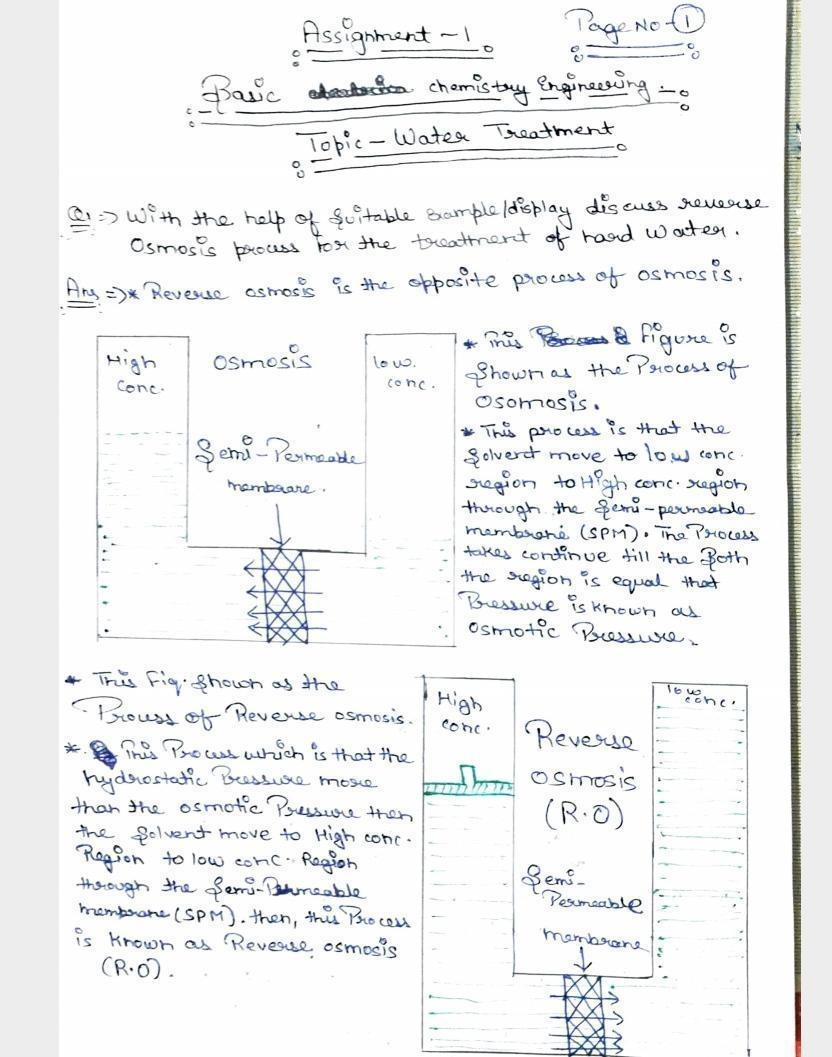 Assignment - 1
Page No - 1
Basic chemistry Engineering :-
Topic - Water Treatment
Q1 => With the help of suitable sample/display discuss reverse
Osmosis process for the treatment of hard water.
Ans => * Reverse osmosis is the opposite process of osmosis.
High
Conc.
Osmosis
low.
conc.
Semi-Permeable
membrane.
* This figure is
shown as the Process of
Osomosis.
* This process is that the
solvent move to low conc.
region to High conc. region
through the semi-permeable
membrane (SPM). The Process
takes continue till the Both
the region is equal that
Pressure is known as
Osmotic Pressure.
* This Fig. shown as the
Process of Reverse osmosis.
* This Process which is that the
hydrostatic Pressure more
than the osmotic Pressure then
the solvent move to High conc.
Region to low conc. Region
through the Semi-Permeable
membrane (SPM). then, this Process
is known as Reverse osmosis
(R.O).
High
conc.
low
conc.
Reverse
osmosis
(R.O)
Semi-
Permeable
membrane